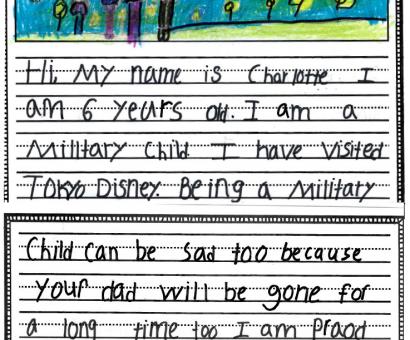 Hi, My name is Charlotte I
am 6 years old. I am a
Military Child I have visited
Tokyo Disney. Being a Military
Child can be sad too because
your dad will be gone for
a long time too I am praod